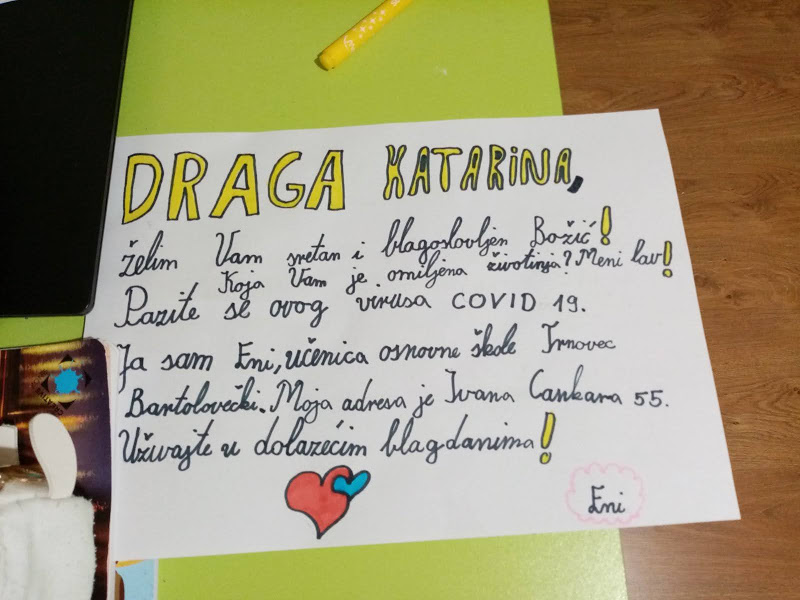 DRAGA KATARINA,
želim Vam sretan i blagoslovljen Božić!
Koja Vam je omiljena životinja? Meni lav!
Pazite se ovog virusa COVID 19.
Ja sam Eni, učenica osnovne škole Trnovec
Bartolovečki. Moja adresa je Ivana Cankara 55.
Uživajte u dolazećim blagdanima!
Eni